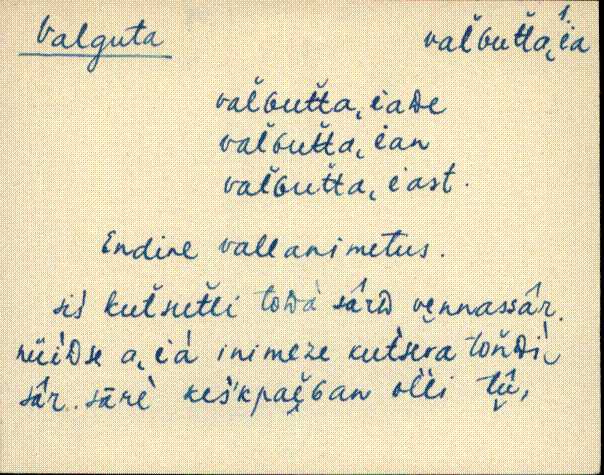 Valguta
1.
val̆ʙut̆t̆a, i̯a
val̆ʙut̆t̆a, i̯aᴅe
val̆ʙut̆t̆a, i̯an
val̆ʙut̆t̆a, i̯ast.
Endine vallanimetus.
siś kut̆sut̆ti toᴅà sâ̄rᴅ vẹnnassâ̄r.
nüìᴅse a, i̯á inimeze kut̀sẹva toñᴅì
sâ̄r. sārè keśkpaĕ̯ʙan ol̆li tû̯,